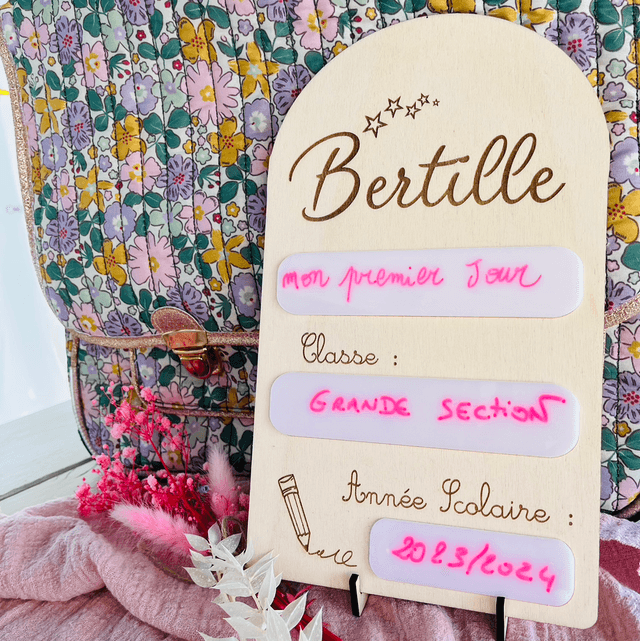 Bertille
mon premier Jour
Classe :
GRANDE SECTION
Année Scolaire :
2023/2024